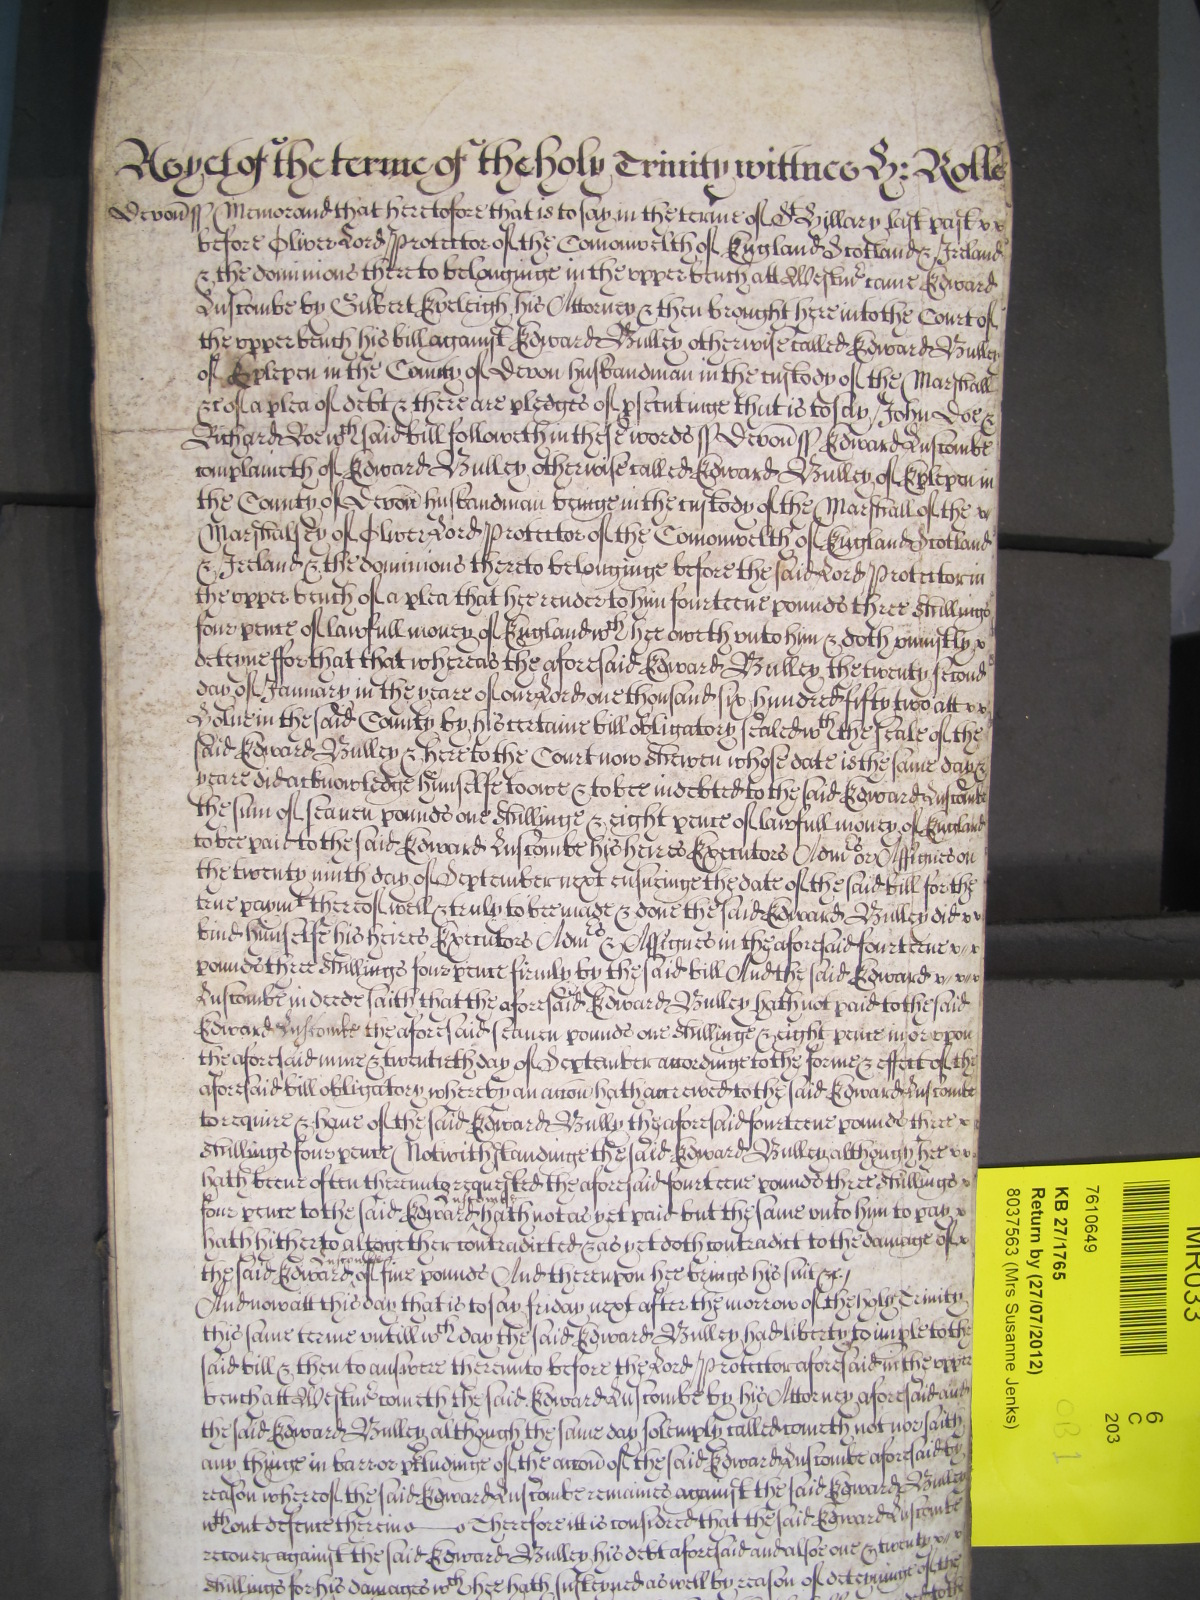 As yet of the terme of the holy Trinity wittnes H: Rolle
Devon ss Memorand that heretofore that is to say in the terme of St Hillary last past
before Oliver Lord Protector of the Comonwelth of England Scotland & Ireland
& the dominions thereto belonginge in the upper bench att Westmr came Edward
Luscombe by Gilbert Eveleigh his Attorney & then brought here into the Court of
the upper bench his bill against Edward Bulley otherwise called Edward Bulley
of Eplepen in the County of Devon husbandman in the custody of the Marshall
&c of a plea of debt & there are pledges of psecutinge that is to say John Doe &
Richard Roe wch said bill followeth in these words ss Devon ss Edward Luscombe
complaineth of Edward Bulley otherwise called Edward Bulley of Eplepen in
the County of Devon husbandman beinge in the custody of the Marshall of the
Marshalsey of Oliver Lord Protector of the Comonwelth of England Scotland
& Ireland & the dominions thereto belonginge before the said Lord Protector in
the upper bench of a plea that hee render to him fourteene pounds three shillings
four pence of lawfull money of England wch hee oweth unto him & doth uniustly
deteyne ffor that that whereas the aforesaid Edward Bulley the twenty second
day of January in the yeare of our Lord one thousand six hundred fifty two att
in the said County by his certaine bill obligatory sealed wth the seale of the
said Edward Bulley & here to the Court now shewen whose date is the same day &
yeare did acknowledge himselfe to owe & to bee indebted to the said Edward Luscombe
the sum of seaven pounds one shillinge & eight pence of lawfull money of England
to bee paid to the said Edward Luscombe his heires Executors Admrs or Assignes on
the twenty ninth day of September next ensueinge the date of the said bill for the
true paymt thereof well & truly to bee made & done the said Edward Bulley did
bind himselfe his heires Executors Admrs & Assignes in the aforesaid fourteene
pounds three shillings four pence firmly by the said bill And the said Edward
Luscombe in deede saith that the aforesaid Edward Bulley hath not paid to the said
Edward Luscombe the aforesaid seaven pounds one shillinge & eight pence in or upon
the aforesaid nine & twentieth day of September accordinge to the forme & effect of the
aforesaid bill obligatory whereby an accon hath accrewed to the said Edward Luscombe
to require & have of the said Edward Bully the aforesaid fourteene pounds three
shillings four pence Notwithstandinge the said Edward Bulley although hee
hath beene often thereunto requested the aforesaid fourteene pounds three shillings
four pence to the said Edward Luscombe hath not as yet paid but the same unto him to pay
hath hitherto altogether contradicted & as yet doth contradict to the damage of
the said Edward Luscombe of five pounds And thereupon hee brings his suit &c
And now att this day that is to say friday next after the morrow of the holy Trinity
this same terme untill wch day the said Edward Bulley had liberty to imple to the
said bill & then to answere thereunto before the Lord Protector aforesaid in the upper
bench att Westmr cometh the said Edward Luscombe by his Attorney aforesaid and
the said Edward Bulley although the same day solemply called cometh not nor saith
any thinge in barr or pcludinge of the accon of the said Edward Luscombe aforesaid by
reason whereof the said Edward Luscombe remaines against the said Edward Bulley
wthout defence therein Therefore itt is considred that the said Edward Luscombe
recover against the said Edward Bulley his debt aforesaid and alsoe one & twenty
shillings for his damages wch hee hath susteyned as well by reason of deteyninge of the
MR033
6
C
203
7610649
KB 27/1765
Return by (27/07/2012)
8037563 (Mrs Susanne Jenks)
OB 1